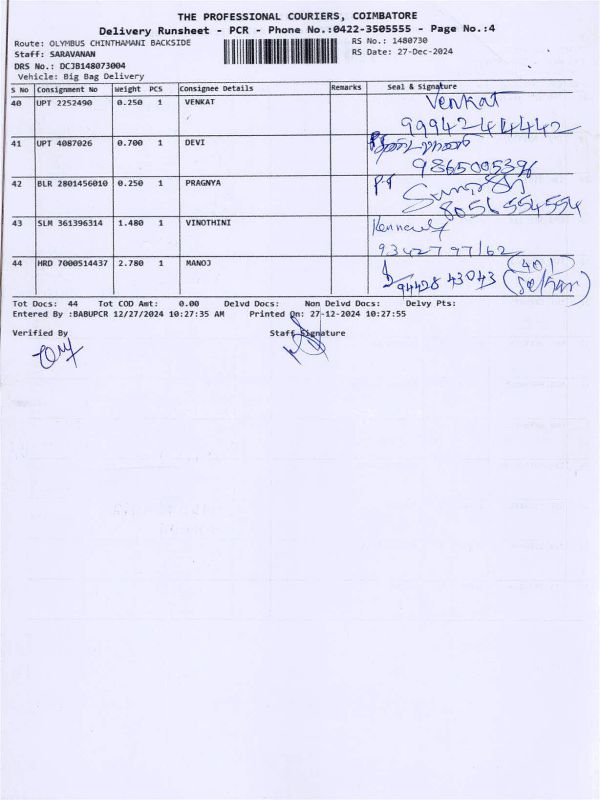 THE PROFESSIONAL COURIERS, COIMBATORE
Delivery Runsheet - PCR - Phone No.:0422-3505555 - Page No.:4
Route: OLYMBUS CHINTHAMANI BACKSIDE RS No.: 1480730
Staff: SARAVANAN RS Date: 27-Dec-2024
DRS No.: DCJB148073004
Vehicle: Big Bag Delivery
S No Consignment No Weight PCS Consignee Details Remarks Seal & Signature
40 UPT 2252490 0.250 1 VENKAT Venkat
9994244442
41 UPT 4087026 0.700 1 DEVI
9865005396
42 BLR 2801456010 0.250 1 PRAGNYA
8056554554
43 SLM 361396314 1.480 1 VINOTHINI
9342797162
44 HRD 7000514437 2.780 1 MANOJ (401
94428 43043 (Sekar)
Tot Docs: 44 Tot COD Amt: 0.00 Delvd Docs: Non Delvd Docs: Delvy Pts:
Entered By :BABUPCR 12/27/2024 10:27:35 AM Printed On: 27-12-2024 10:27:55
Verified By Staff Signature